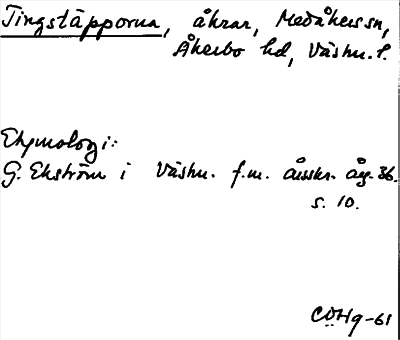 Tingstäpporna, åkrar, Medåkers sn,
Åkerbo hd, Västm. l.
Etymologi:
G. Ekström i Västm. f.m. årsskr. åg. 36.
s. 10.
CÖHg-61